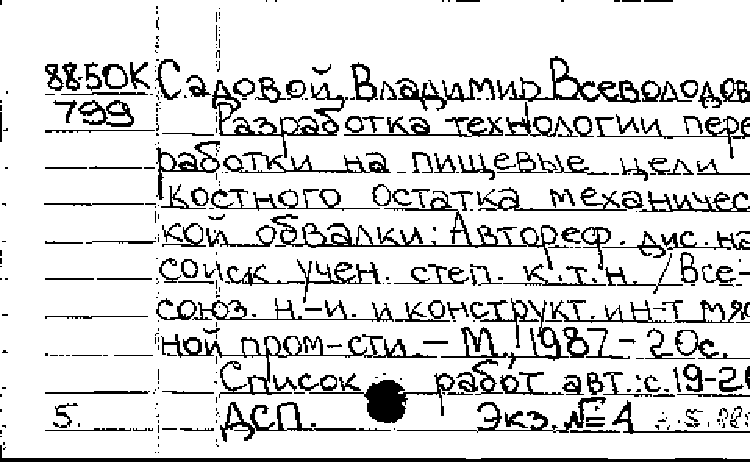 88-50К Садовой, Владимир Всеволодов
799 Разработка технологии пере
работки на пищевые цели
костного остатка механичес
кой обвалки: Автореф. дис. на
соиск. учен. степ. к.т.н. / Все-
союз. н.-и. и конструкт. ин-т мяс
ной пром-сти. - М., 1987 - 20с.
Список работ авт.: с.19-20
5. ДСП. Экз. №